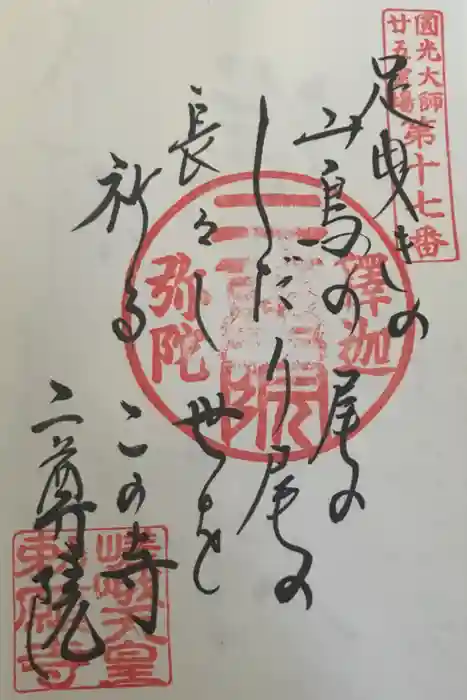 圓光大師
廿五霊場
第十七番
足曳きの
山鳥の尾の
しだり尾の
長々し世を
祈る
この寺
二尊院
二尊院
釋迦
弥陀
嵯峨天皇
勅願寺